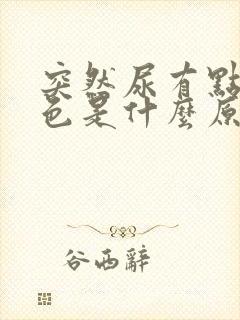 突然尿有點
色是什麼原
谷西辭